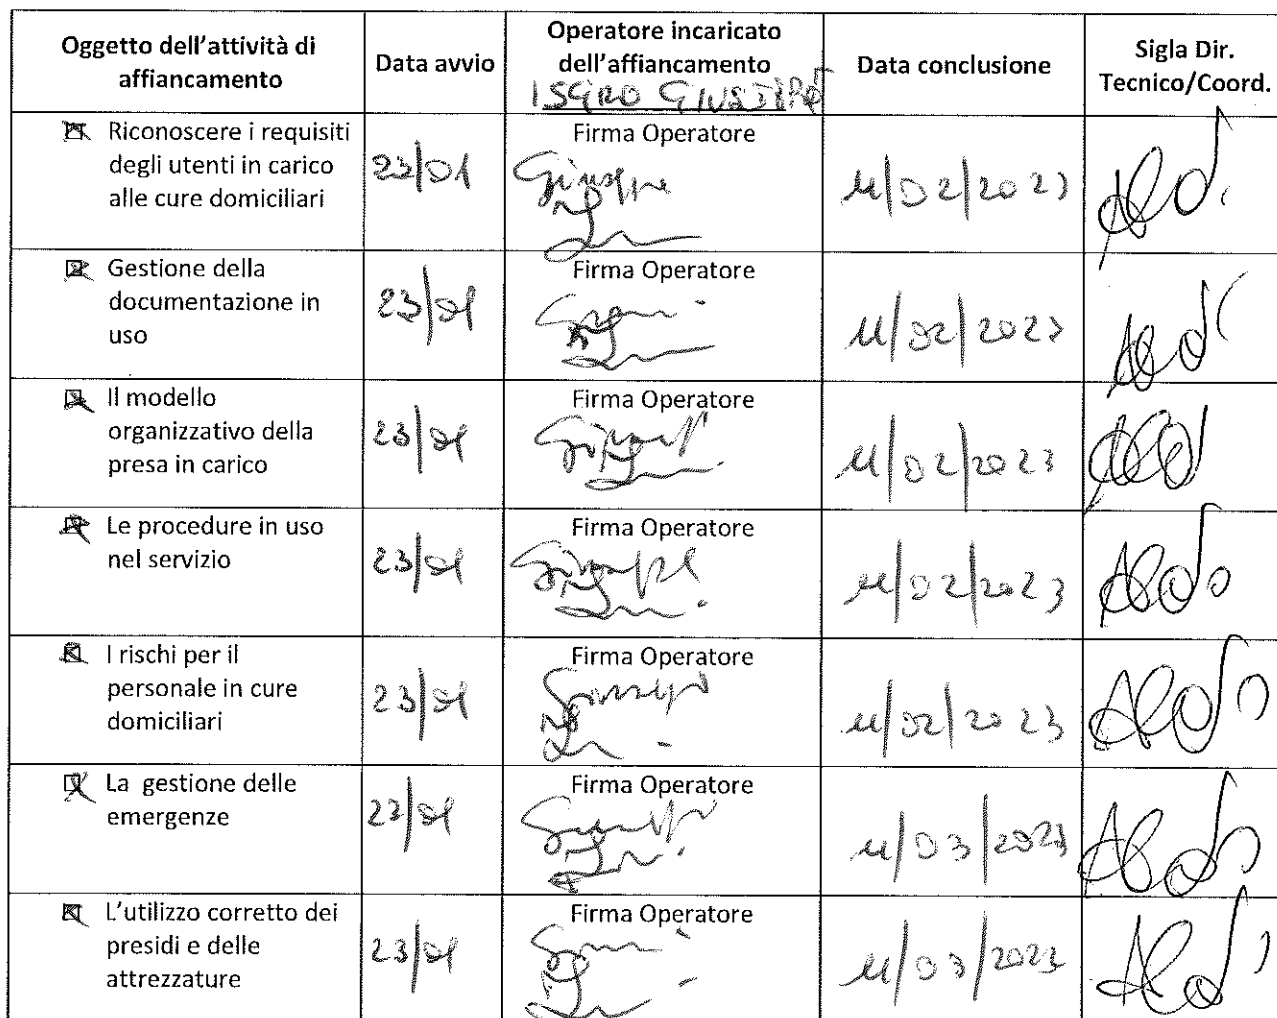 Oggetto dell'attività di
affiancamento
Data avvio
Operatore incaricato
dell'affiancamento
ISGRO GIUSEPPE
Data conclusione
Sigla Dir.
Tecnico/Coord.
Riconoscere i requisiti
degli utenti in carico
alle cure domiciliari
23/01
Firma Operatore
Giuseppe
11/02/2023
Gestione della
documentazione in
uso
23/01
Firma Operatore
11/02/2023
Il modello
organizzativo della
presa in carico
23/01
Firma Operatore
11/02/2023
Le procedure in uso
nel servizio
23/01
Firma Operatore
11/02/2023
I rischi per il
personale in cure
domiciliari
23/01
Firma Operatore
11/02/2023
La gestione delle
emergenze
23/01
Firma Operatore
11/03/2023
L'utilizzo corretto dei
presidi e delle
attrezzature
23/01
Firma Operatore
11/03/2023